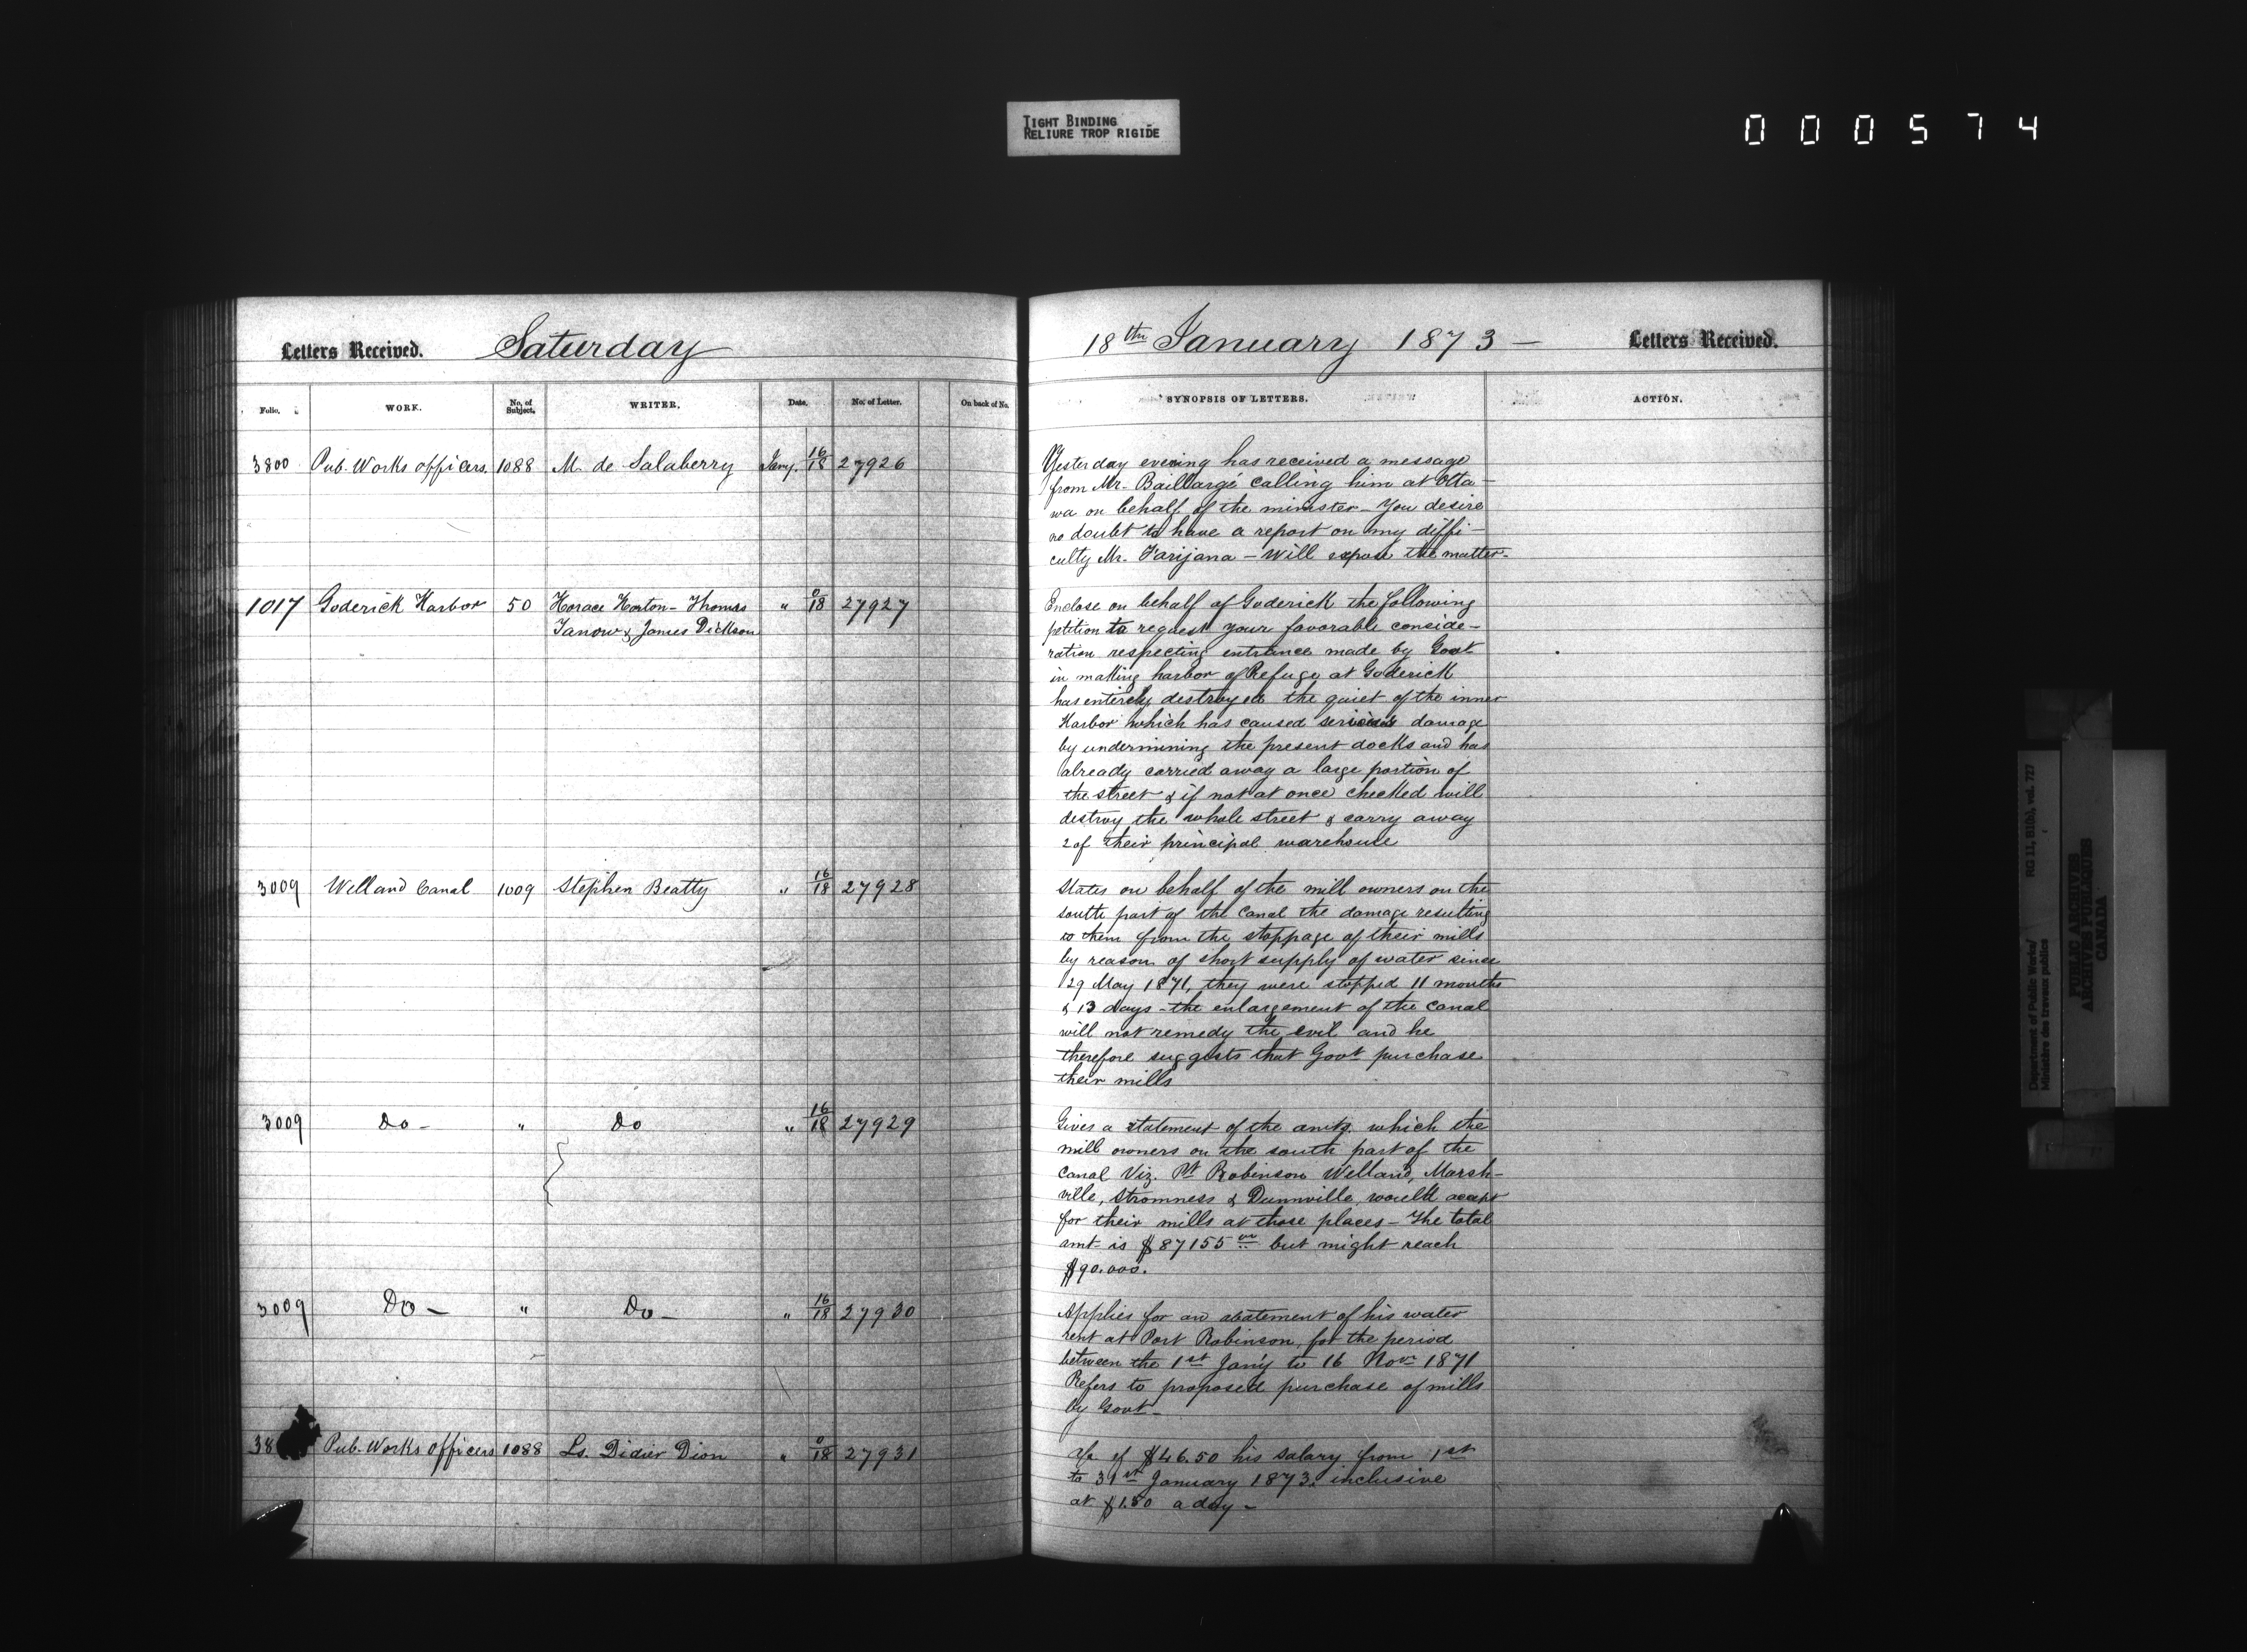 TIGHT BINDING
RELIURE TROP RIGIDE
000574
Letters Received. Saturday
18th January 1873 — Letters Received.
Folio. WORK. No. of Subject. WRITER. Date. No. of Letter. On back of No.
SYNOPSIS OF LETTERS. ACTION.
3800 Pub. Works officers. 1088 M. de Salaberry Jany. 16/18 27926
Yesterday evening has received a message
from Mr. Baillargé calling him at Otta-
wa on behalf of the minister - You desire
no doubt to have a report on my diffi-
culty Mr. Farijana - Will expose the matter.
1017 Goderick Harbor 50 Horace Horton - Thomas " 0/18 27927
& James Dickson
Enclose on behalf of Goderick the following
petition to request your favorable conside-
ration respecting entrance made by Govt
in making harbor of Refuge at Goderick
has entirely destroyed the quiet of the inner
Harbor which has caused serious damage
by undermining the present docks and has
already carried away a large portion of
the street & if not at once checked will
destroy the whole street & carry away
2 of their principal warehouse
3009 Welland Canal 1009 Stephen Beatty " 16/18 27928
States on behalf of the mill owners on the
south part of the Canal the damage resulting
to them from the stoppage of their mills
by reason of short supply of water since
29 May 1871, they were stopped 11 months
& 13 days - the enlargement of the Canal
will not remedy the evil and he
therefore suggests that Govt purchase
their mills
3009 Do - " Do " 16/18 27929
Gives a statement of the amts. which the
mill owners on the south part of the
Canal Viz. Pt Robinson Welland, Marsh-
ville, Stromness & Dunnville would accept
for their mills at those places - The total
amt is $87155 00 but might reach
$90.000.
3009 Do - " Do - " 16/18 27930
Applies for an abatement of his water
rent at Port Robinson, for the period
between the 1st Jany to 16 Novr 1871
Refers to proposed purchase of mills
by Govt -
38 Pub. Works officers 1088 Ls. Didier Dion " 0/18 27931
a/c of $46.50 his salary from 1st
to 31st January 1873. inclusive
at $1.50 a day -
Department of Public Works/
Ministère des travaux publics
RG 11, B1(b), vol. 727
PUBLIC ARCHIVES
ARCHIVES PUBLIQUES
CANADA